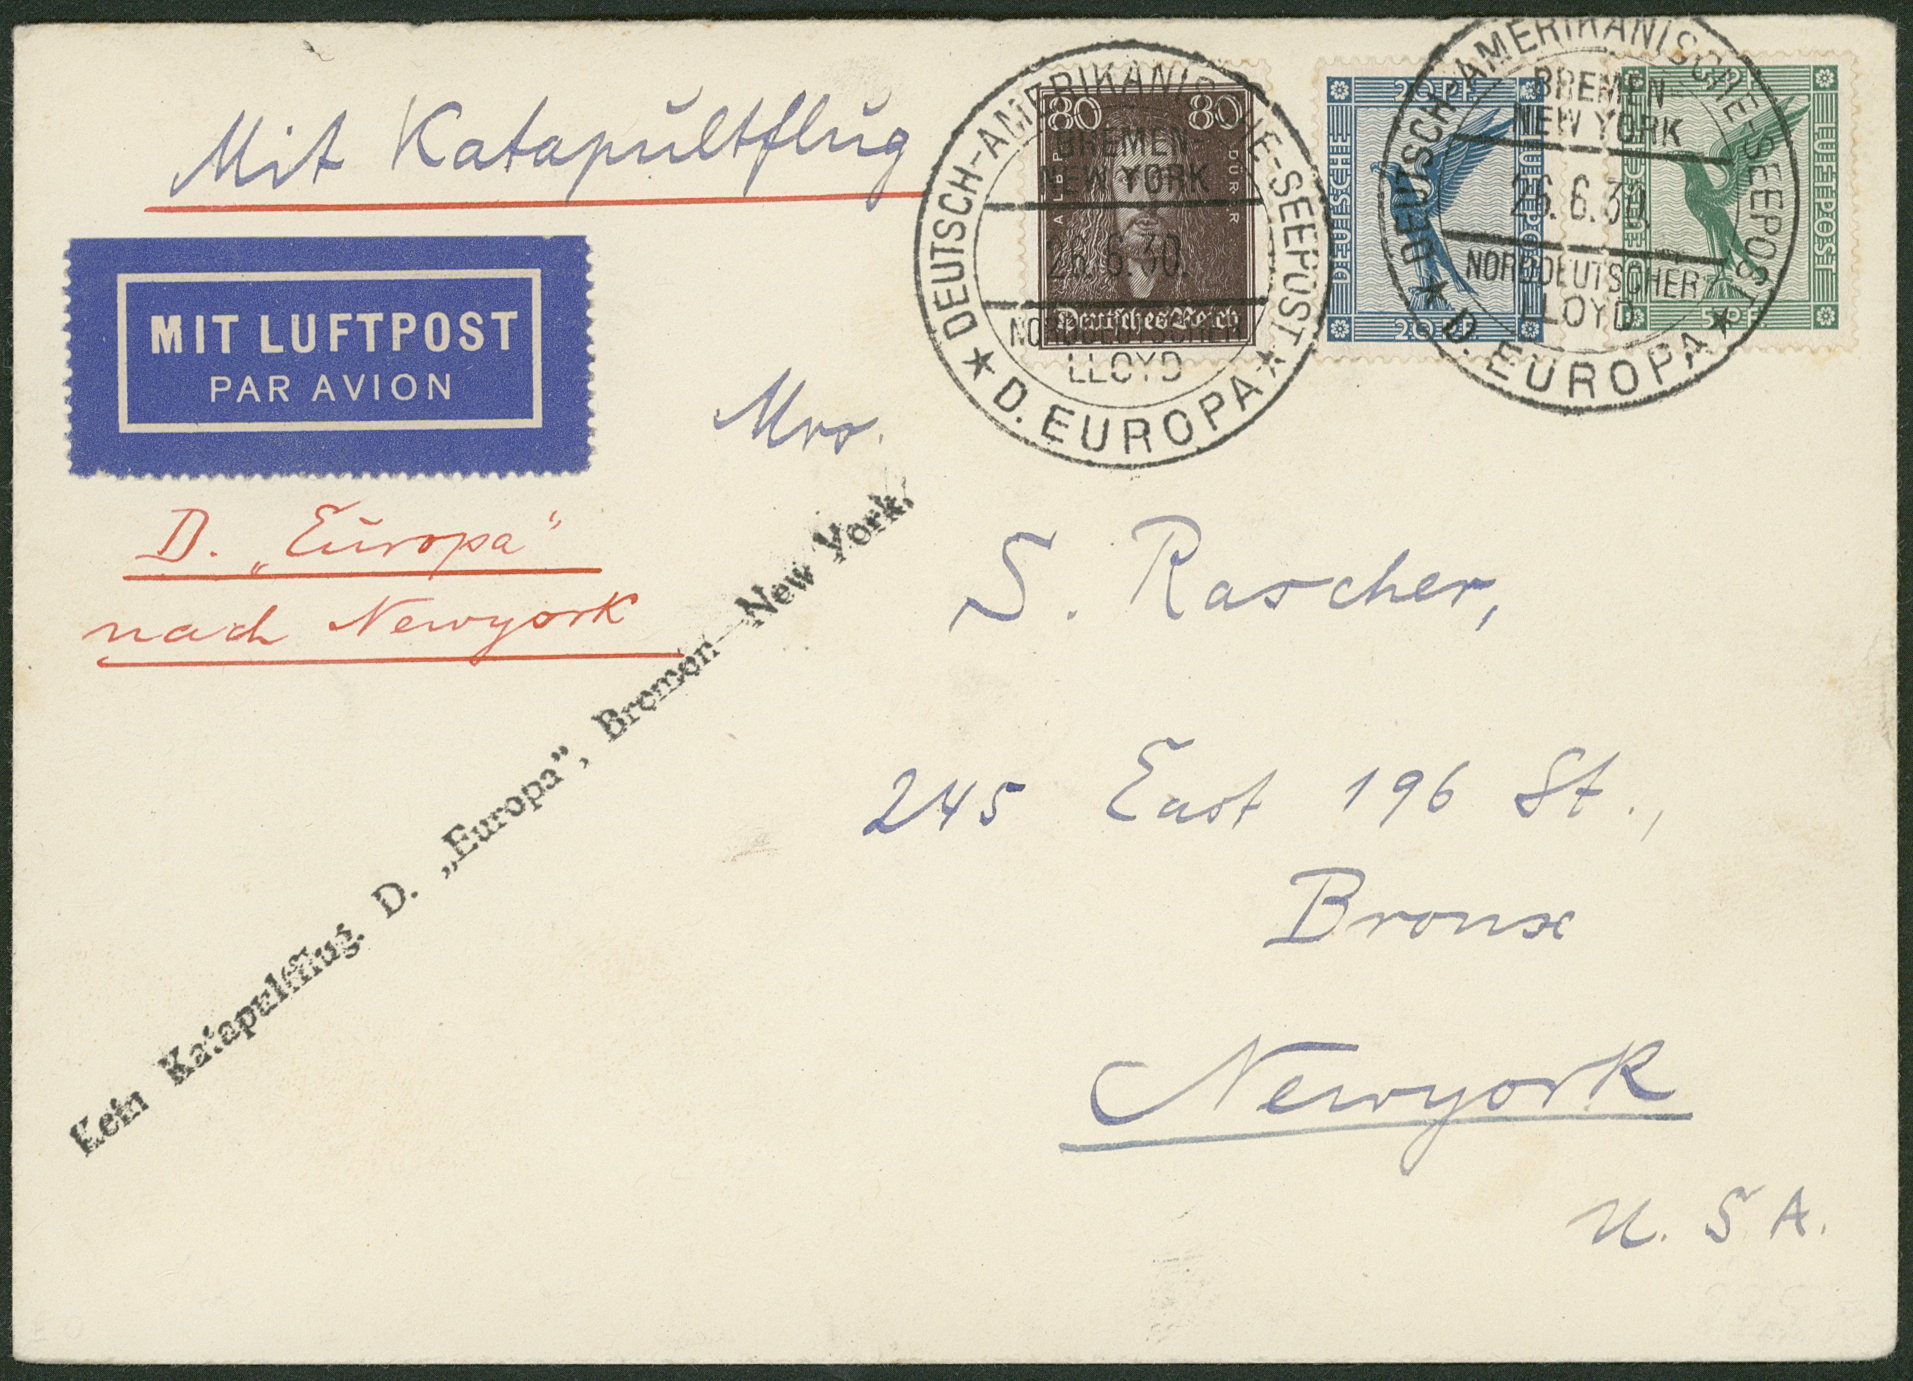 Mit Katapultflug
80 80
ALBR. DÜRER
Deutsches Reich
20 PF
DEUTSCHE LUFTPOST
20 PF
DEUTSCHE LUFTPOST
5 PF.
DEUTSCH-AMERIKANISCHE-SEEPOST
BREMEN-
NEW YORK
26.6.30.
NORDDEUTSCHER
LLOYD
★ D. EUROPA ★
DEUTSCH-AMERIKANISCHE-SEEPOST
BREMEN-
NEW YORK
26.6.30.
NORDDEUTSCHER
LLOYD
★ D. EUROPA ★
MIT LUFTPOST
PAR AVION
D. „Europa“
nach Newyork
Kein Katapultflug. D. „Europa“, Bremen–New York.
Mrs.
S. Rascher,
245 East 196 St.,
Bronx
Newyork
U. S. A.